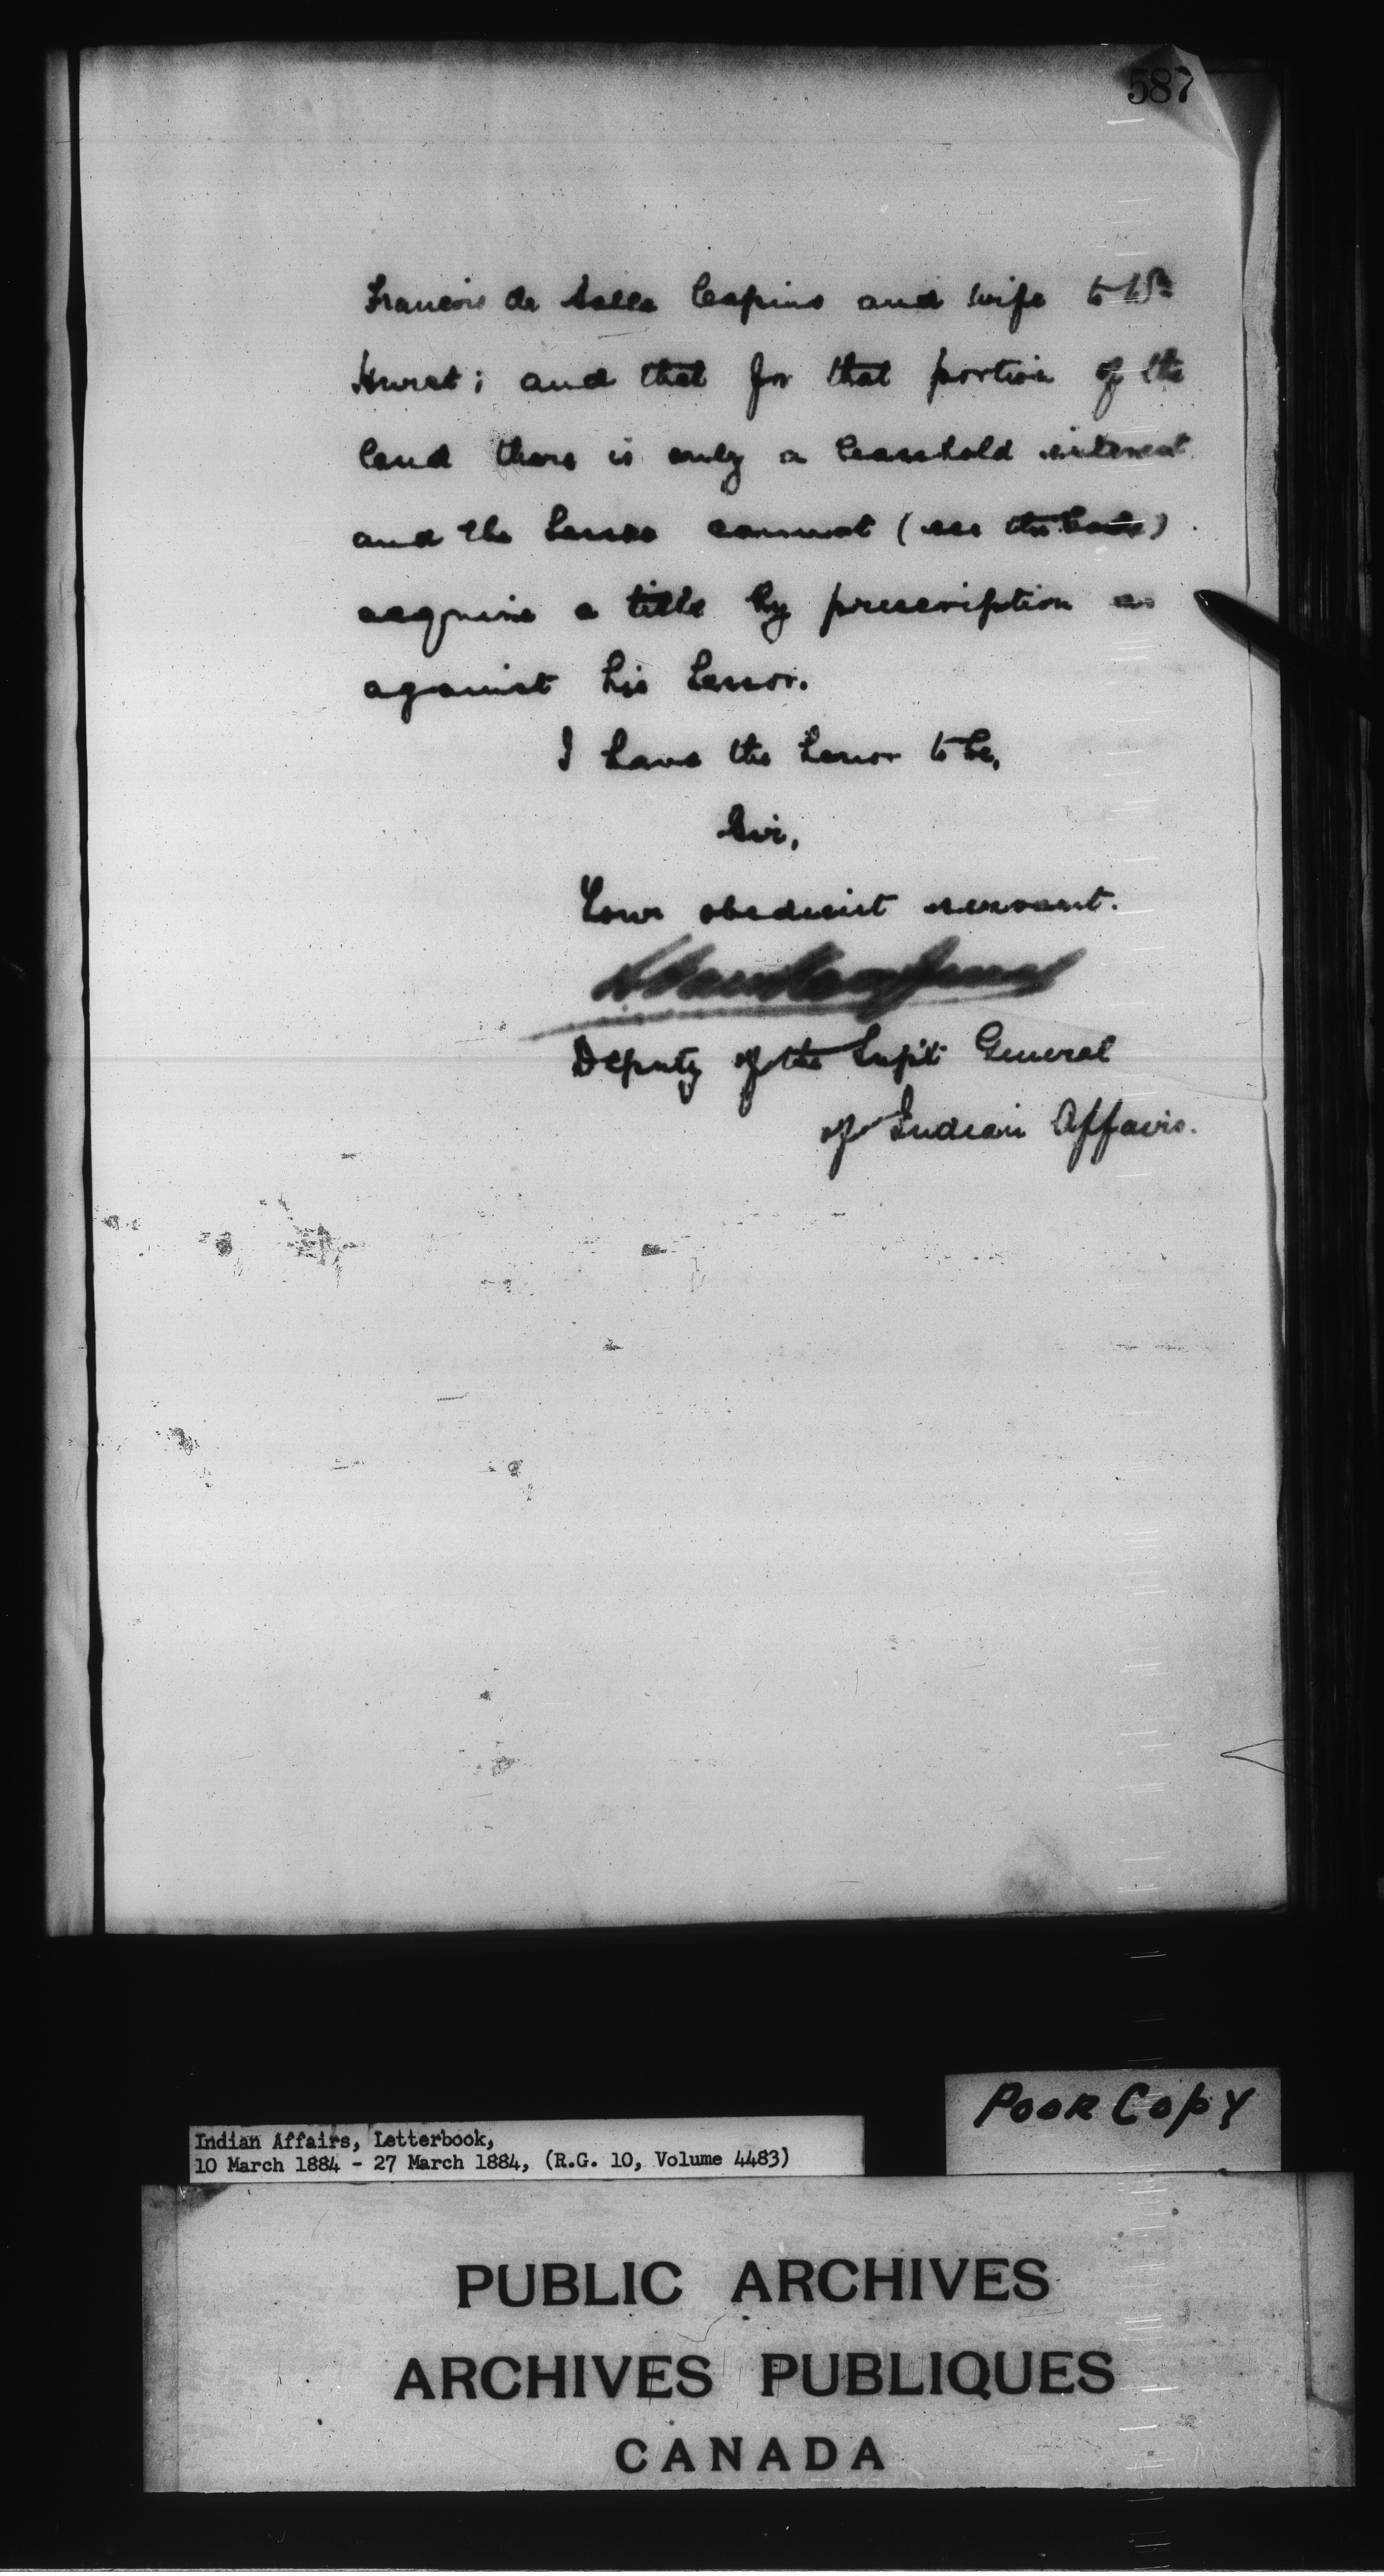 587
Francois de Salle Cespins and wife to Wm
Hurst; and that for that portion of the
land there is only a leasehold interest
and the lessee cannot (see
acquire a title by prescription as
against his lessor.
I have the honor to be,
Sir,
Your obedient servant.
Deputy of the Supt General
of Indian Affairs.
POOR COPY
Indian Affairs, Letterbook,
10 March 1884 - 27 March 1884, (R.G. 10, Volume 4483)
PUBLIC ARCHIVES
ARCHIVES PUBLIQUES
CANADA